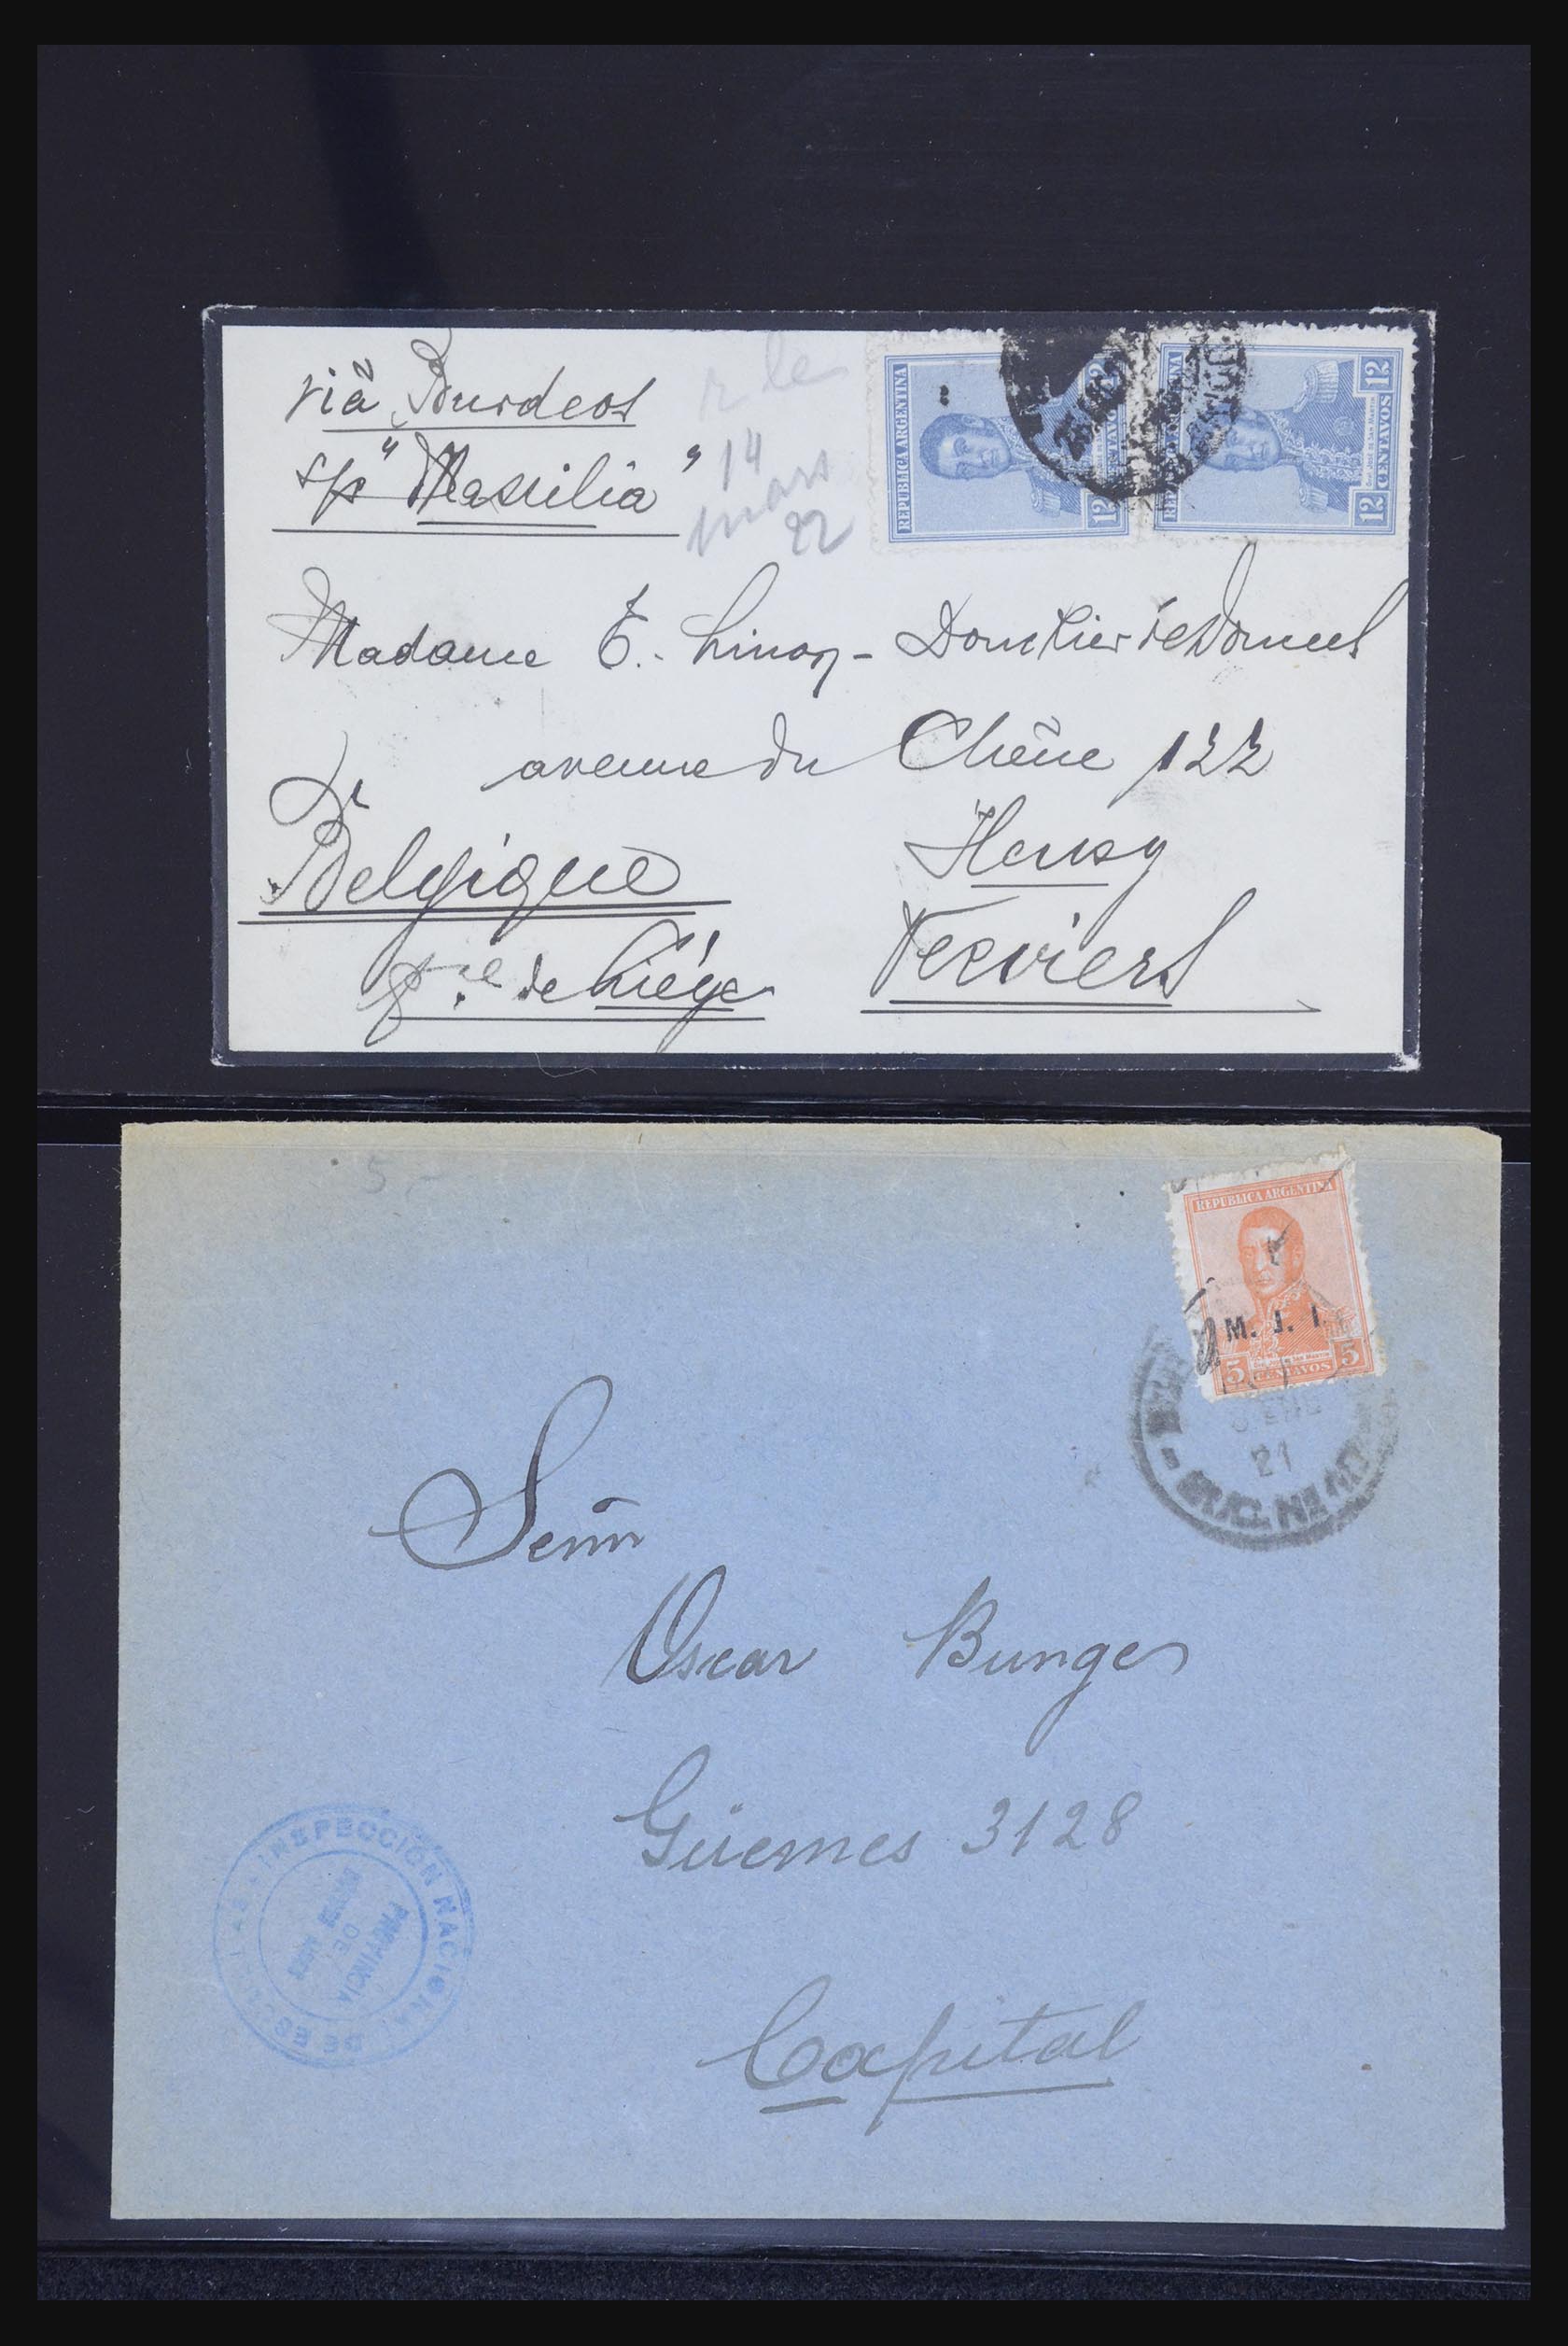 viâ Burdeos
s/p "Massilia"
r le
14
mars
22
REPUBLICA ARGENTINA
12 CENTAVOS 12
REPUBLICA ARGENTINA
12 CENTAVOS 12
Madame E. Linon - Donckier de Donceel
avenue du Chêne 122
Heusy
Verviers
Belgique
pce de Liége
5 -
REPUBLICA ARGENTINA
M. J. I.
5 CENTAVOS 5
ENE
21
Señor
Oscar Bunge
Güemes 3128
Capital
INSPECCIÓN NACIONAL DE ESCUELAS
PROVINCIA
DE
BUENOS AIRES